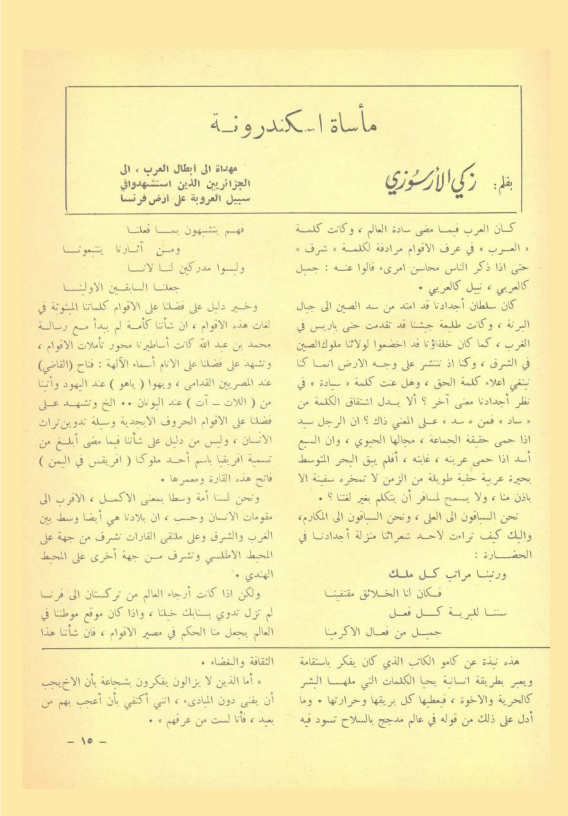 مأساة اسكندرونة
بقلم : زكي الأرسوزي
مهداة الى أبطال العرب ، الى
الجزائريين الذين استشهدوا في
سبيل العروبة على أرض فرنسا
كان العرب فيما مضى سادة العالم ، وكانت كلمة
« العرب » في عرف الاقوام مرادفة لكلمة « شرف »
حتى اذا ذكر الناس محاسن امرىء قالوا عنه : جميل
كالعربي ، نبيل كالعربي .
كان سلطان أجدادنا قد امتد من سد الصين الى جبال
البرنة ، وكانت طليعة جيشنا قد تقدمت حتى باريس في
الغرب ، كما كان خلفاؤنا قد اخضعوا لولائنا ملوك الصين
في الشرق ، وكنا اذ ننتشر على وجه الارض انما كنا
نبتغي اعلاء كلمة الحق ، وهل عنت كلمة « سيادة » في
نظر أجدادنا معنى آخر ؟ ألا يدل اشتقاق الكلمة من
« ساد » فمن « سد » على المعنى ذاك ؟ ان الرجل سيد
اذا حمى حقيقة الجماعة ، مجالها الحيوي ، وان السبع
أسد اذا حمى عرينه ، غابته ، أفلم يبق البحر المتوسط
بحيرة عربية حقبة طويلة من الزمن لا تمخره سفينة الا
باذن منا ، ولا يسمح لمسافر أن يتكلم بغير لغتنا ؟ .
نحن السباقون الى العلى ، ونحن السباقون الى المكارم،
واليك كيف تراءت لاحد شعرائنا منزلة أجدادنا في
الحضارة :
ورتبنا مراتب كل ملك
فكان انا الخلائق مقتفينا
سننا للبرية كل فعل
جميل من فعال الاكرمينا
فهم يتشبهون بما فعلنا
ومن آثارنا يتتبعونا
وليسوا مدركين لنا لانا
جعلنا السابقين الاولينا
وخير دليل على فضلنا على الاقوام كلماتنا المبثوثة في
لغات هذه الاقوام ، ان شأننا كأمة لم يبدأ مع رسالة
محمد بن عبد الله كانت أساطيرنا محور تأملات الاقوام ،
وتشهد على فضلنا على الانام أسماء الآلهة : فتاح (القاضي)
عند المصريين القدامى ، ويهوا ( ياهو ) عند اليهود وأتينا
من ( اللات ـ آت ) عند اليونان .. الخ وتشهد على
فضلنا على الاقوام الحروف الابجدية وسيلة تدوين تراث
الانسان ، وليس من دليل على شأننا فيما مضى أبلغ من
تسمية افريقيا باسم أحد ملوكنا ( افريقس في اليمن )
فاتح هذه القارة ومعمرها .
ونحن لسنا أمة وسطا بمعنى الاكمل ، الاقرب الى
مقومات الانسان وحسب ، ان بلادنا هي أيضا وسط بين
الغرب والشرق وعلى ملتقى القارات تشرف من جهة على
المحيط الاطلسي وتشرف من جهة أخرى على المحيط
الهندي .
ولكن اذا كانت أرجاء العالم من تركستان الى فرنسا
لم تزل تدوي بسنابك خيلنا ، واذا كان موقع موطننا في
العالم يجعل منا الحكم في مصير الاقوام ، فان شأننا هذا
هذه نبذة عن كامو الكاتب الذي كان يفكر باستقامة
ويعبر بطريقة انسانية يحيا الكلمات التي ملهـا البشر
كالحرية والاخوة ، فيعطيها كل بريقها وحرارتها . وما
أدل على ذلك من قوله في عالم مدجج بالسلاح تسود فيه
الثقافة والبغضاء .
« أما الذين لا يزالون يفكرون بشجاعة بأن الاخ يجب
أن يفنى دون المبادىء ، انني أكتفي بأن أعجب بهم من
بعيد ، فأنا لست من عرقهم » .
– ١٥ –